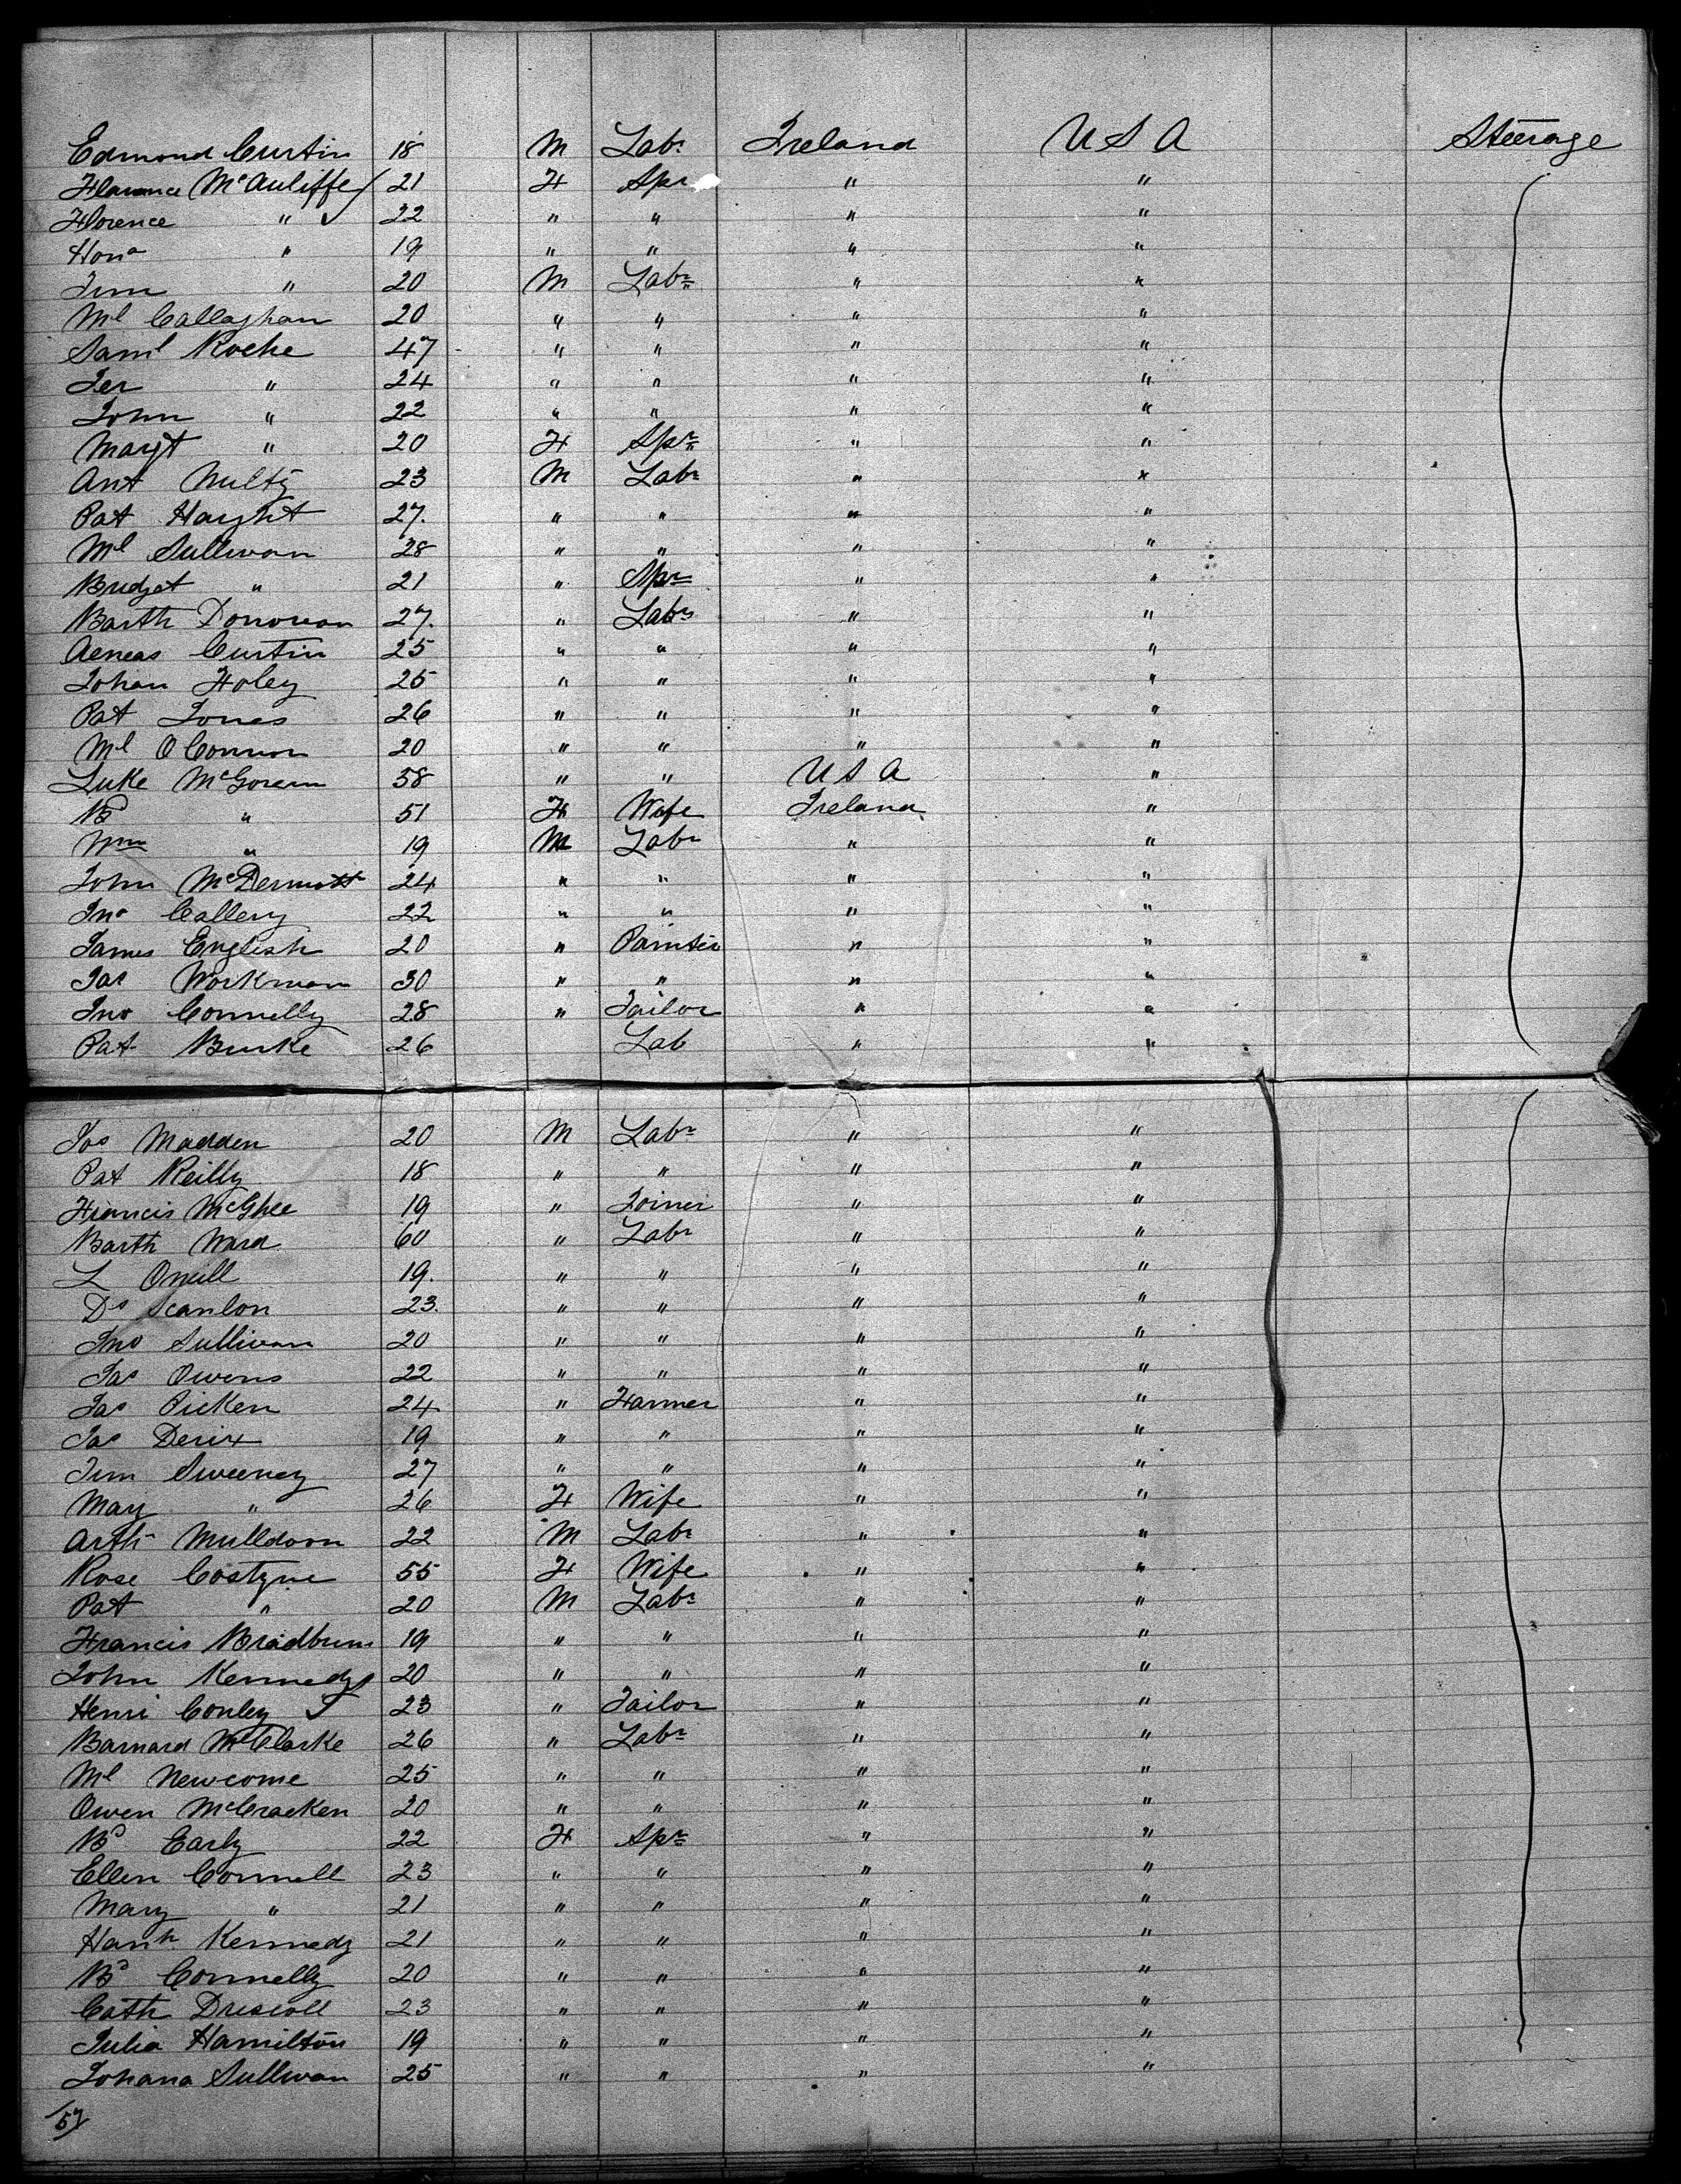 Edmond Curtin 18 M Labr Ireland U S A Steerage
Florence McAuliffe 21 F Spr " "
Florence " 22 " " " "
Hona " 19 " " " "
Tim " 20 M Labr " "
Ml Callaghan 20 " " " "
Saml Roche 47 " " " "
Jer " 24 " " " "
John " 22 " " " "
Margt " 20 F Spr " "
Ant Nulty 23 M Labr " "
Pat Haight 27. " " " "
Ml Sullivan 28 " " " "
Bridget " 21 " Spr " "
Barth Donovan 27. " Labr " "
Aeneas Curtin 25 " " " "
Johan Foley 25 " " " "
Pat Jones 26 " " " "
Ml O Connor 20 " " " "
Luke McGovern 58 " " U S A "
B " 51 F Wife Ireland "
Wm " 19 M Labr " "
John McDermott 24 " " " "
Jno Callery 22 " " " "
James English 20 " Painter " "
Jas Workman 30 " " " "
Jno Connelly 28 " Tailor " "
Pat Burke 26 Lab " "
Jos Madden 20 M Labr " "
Pat Reilly 18 " " " "
Francis McGhee 19 " Joiner " "
Barth Ward 60 " Labr " "
L Oneill 19. " " " "
Ds Scanlon 23. " " " "
Jno Sullivan 20 " " " "
Jas Owens 22 " " " "
Jas Picken 24 " Farmer " "
Jas 19 " " " "
Tim Sweeney 27 " " " "
Mary " 26 F Wife " "
Arth Mulldoon 22 M Labr " "
Rose Costyne 55 F Wife " "
Pat " 20 M Labr " "
Francis Bradburn 19 " " " "
John Kennedy 20 " " " "
Henri Conley 23 " Tailor " "
Barnard McClarke 26 " Labr " "
Ml Newcome 25 " " " "
Owen McCracken 20 " " " "
Bd Early 22 F Spr " "
Ellen Connell 23 " " " "
Mary " 21 " " " "
Hanh Kennedy 21 " " " "
Bd Connelly 20 " " " "
Cath Driscoll 23 " " " "
Julia Hamilton 19 " " " "
Johana Sullivan 25 " " " "
/57